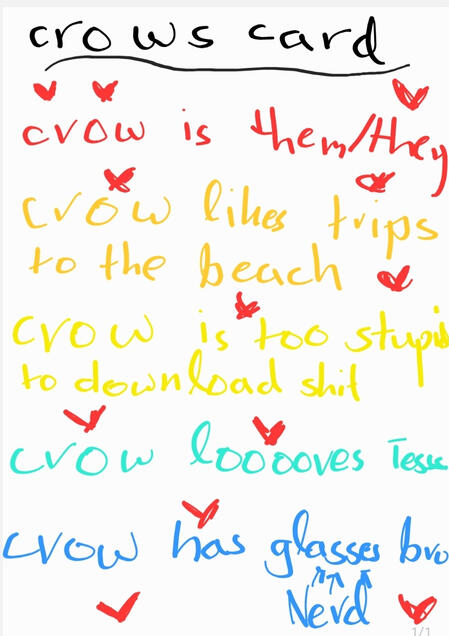 crows card
crow is them/they
crow likes trips
to the beach
crow is too stupid
to download shit
crow looooves
crow has glasses bro
Nerd
1/1